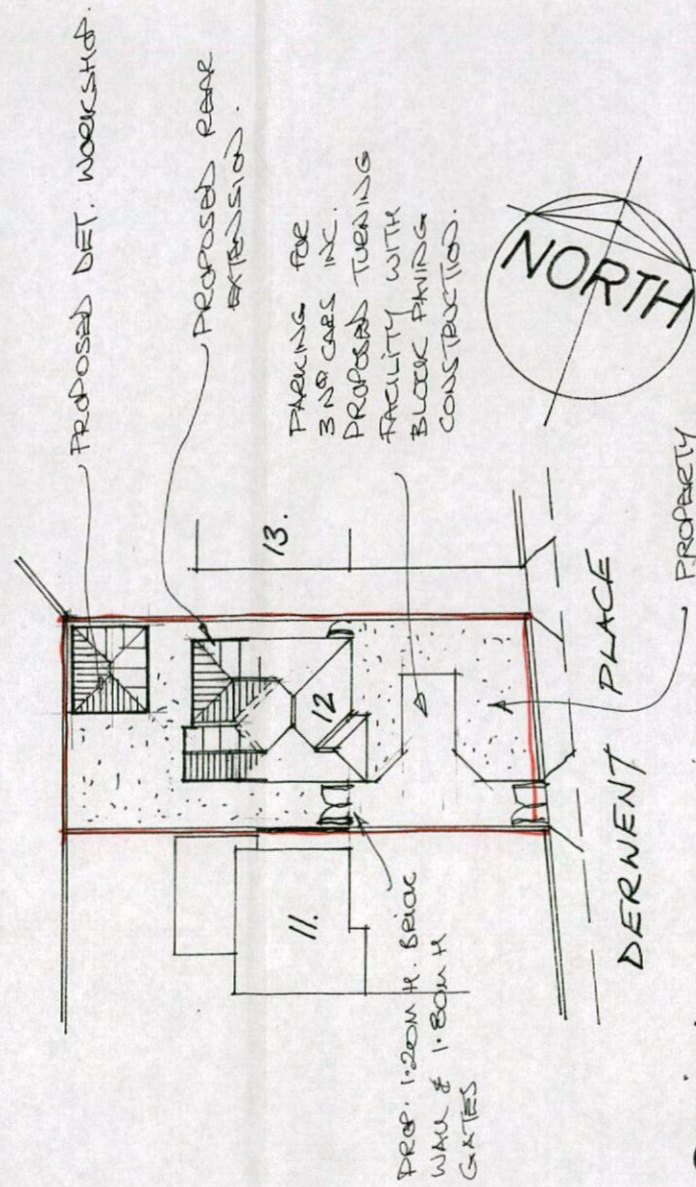 PROPOSED DET. WORKSHOP.
PROPOSED REAR
EXTENSION.
PARKING FOR
3 Nº CARS INC.
PROPOSED TURNING
FACILITY WITH
BLOCK PAVING
CONSTRUCTION.
13.
12
11.
PROP. 1.20M H. BRICK
WALL & 1.80M H
GATES
NORTH
DERWENT PLACE
PROPERTY